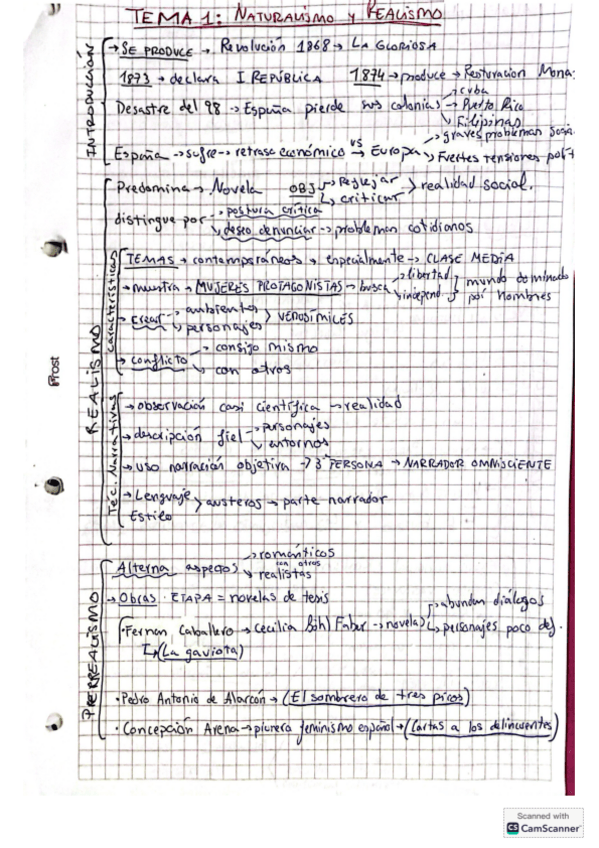 TEMA 1: NATURALISMO y REALISMO
INTRODUCCIÓN
→ SE PRODUCE → Revolución 1868 → LA GLORIOSA
1873 → declara I REPÚBLICA 1874 → produce → Resturacion Mona
Desastre del 98 → España pierde sus colonias → cuba
→ Puerto Rico
→ Filipinas
España → sufre → retraso económico vs Europa → graves problemas socia
→ Fuertes tensiones polít
REALISMO
Predomina → Novela OBJ → Reflejar
→ criticar > realidad social.
distingue por → postura crítica
→ deseo denunciar → problemas cotidianos
Características
TEMAS → contemporáneos → especialmente → CLASE MEDIA
→ muestra → MUJERES PROTAGONISTAS → busca → libertad
→ independ. } mundo dominado
por hombres
→ crear → ambientes
→ personajes > VEROSÍMILES
→ conflicto → consigo mismo
→ con otros
Téc. Narrativas
→ observación casi científica → realidad
→ descripción fiel → personajes
→ entornos
→ uso narración objetiva → 3ª PERSONA → NARRADOR OMNISCIENTE
→ Lenguaje
Estilo > austeros → parte narrador
PRERREALISMO
Alterna aspectos → románticos
con otros
→ realistas
→ Obras ETAPA = novelas de tesis
· Fernan Caballero → Cecilia Böhl Faber → novela → abundan diálogos
→ personajes poco def.
(La gaviota)
· Pedro Antonio de Alarcón → (El sombrero de tres picos)
· Concepción Arena → pionera feminismo español → (Cartas a los delincuentes)
Prost
Scanned with
CS CamScanner